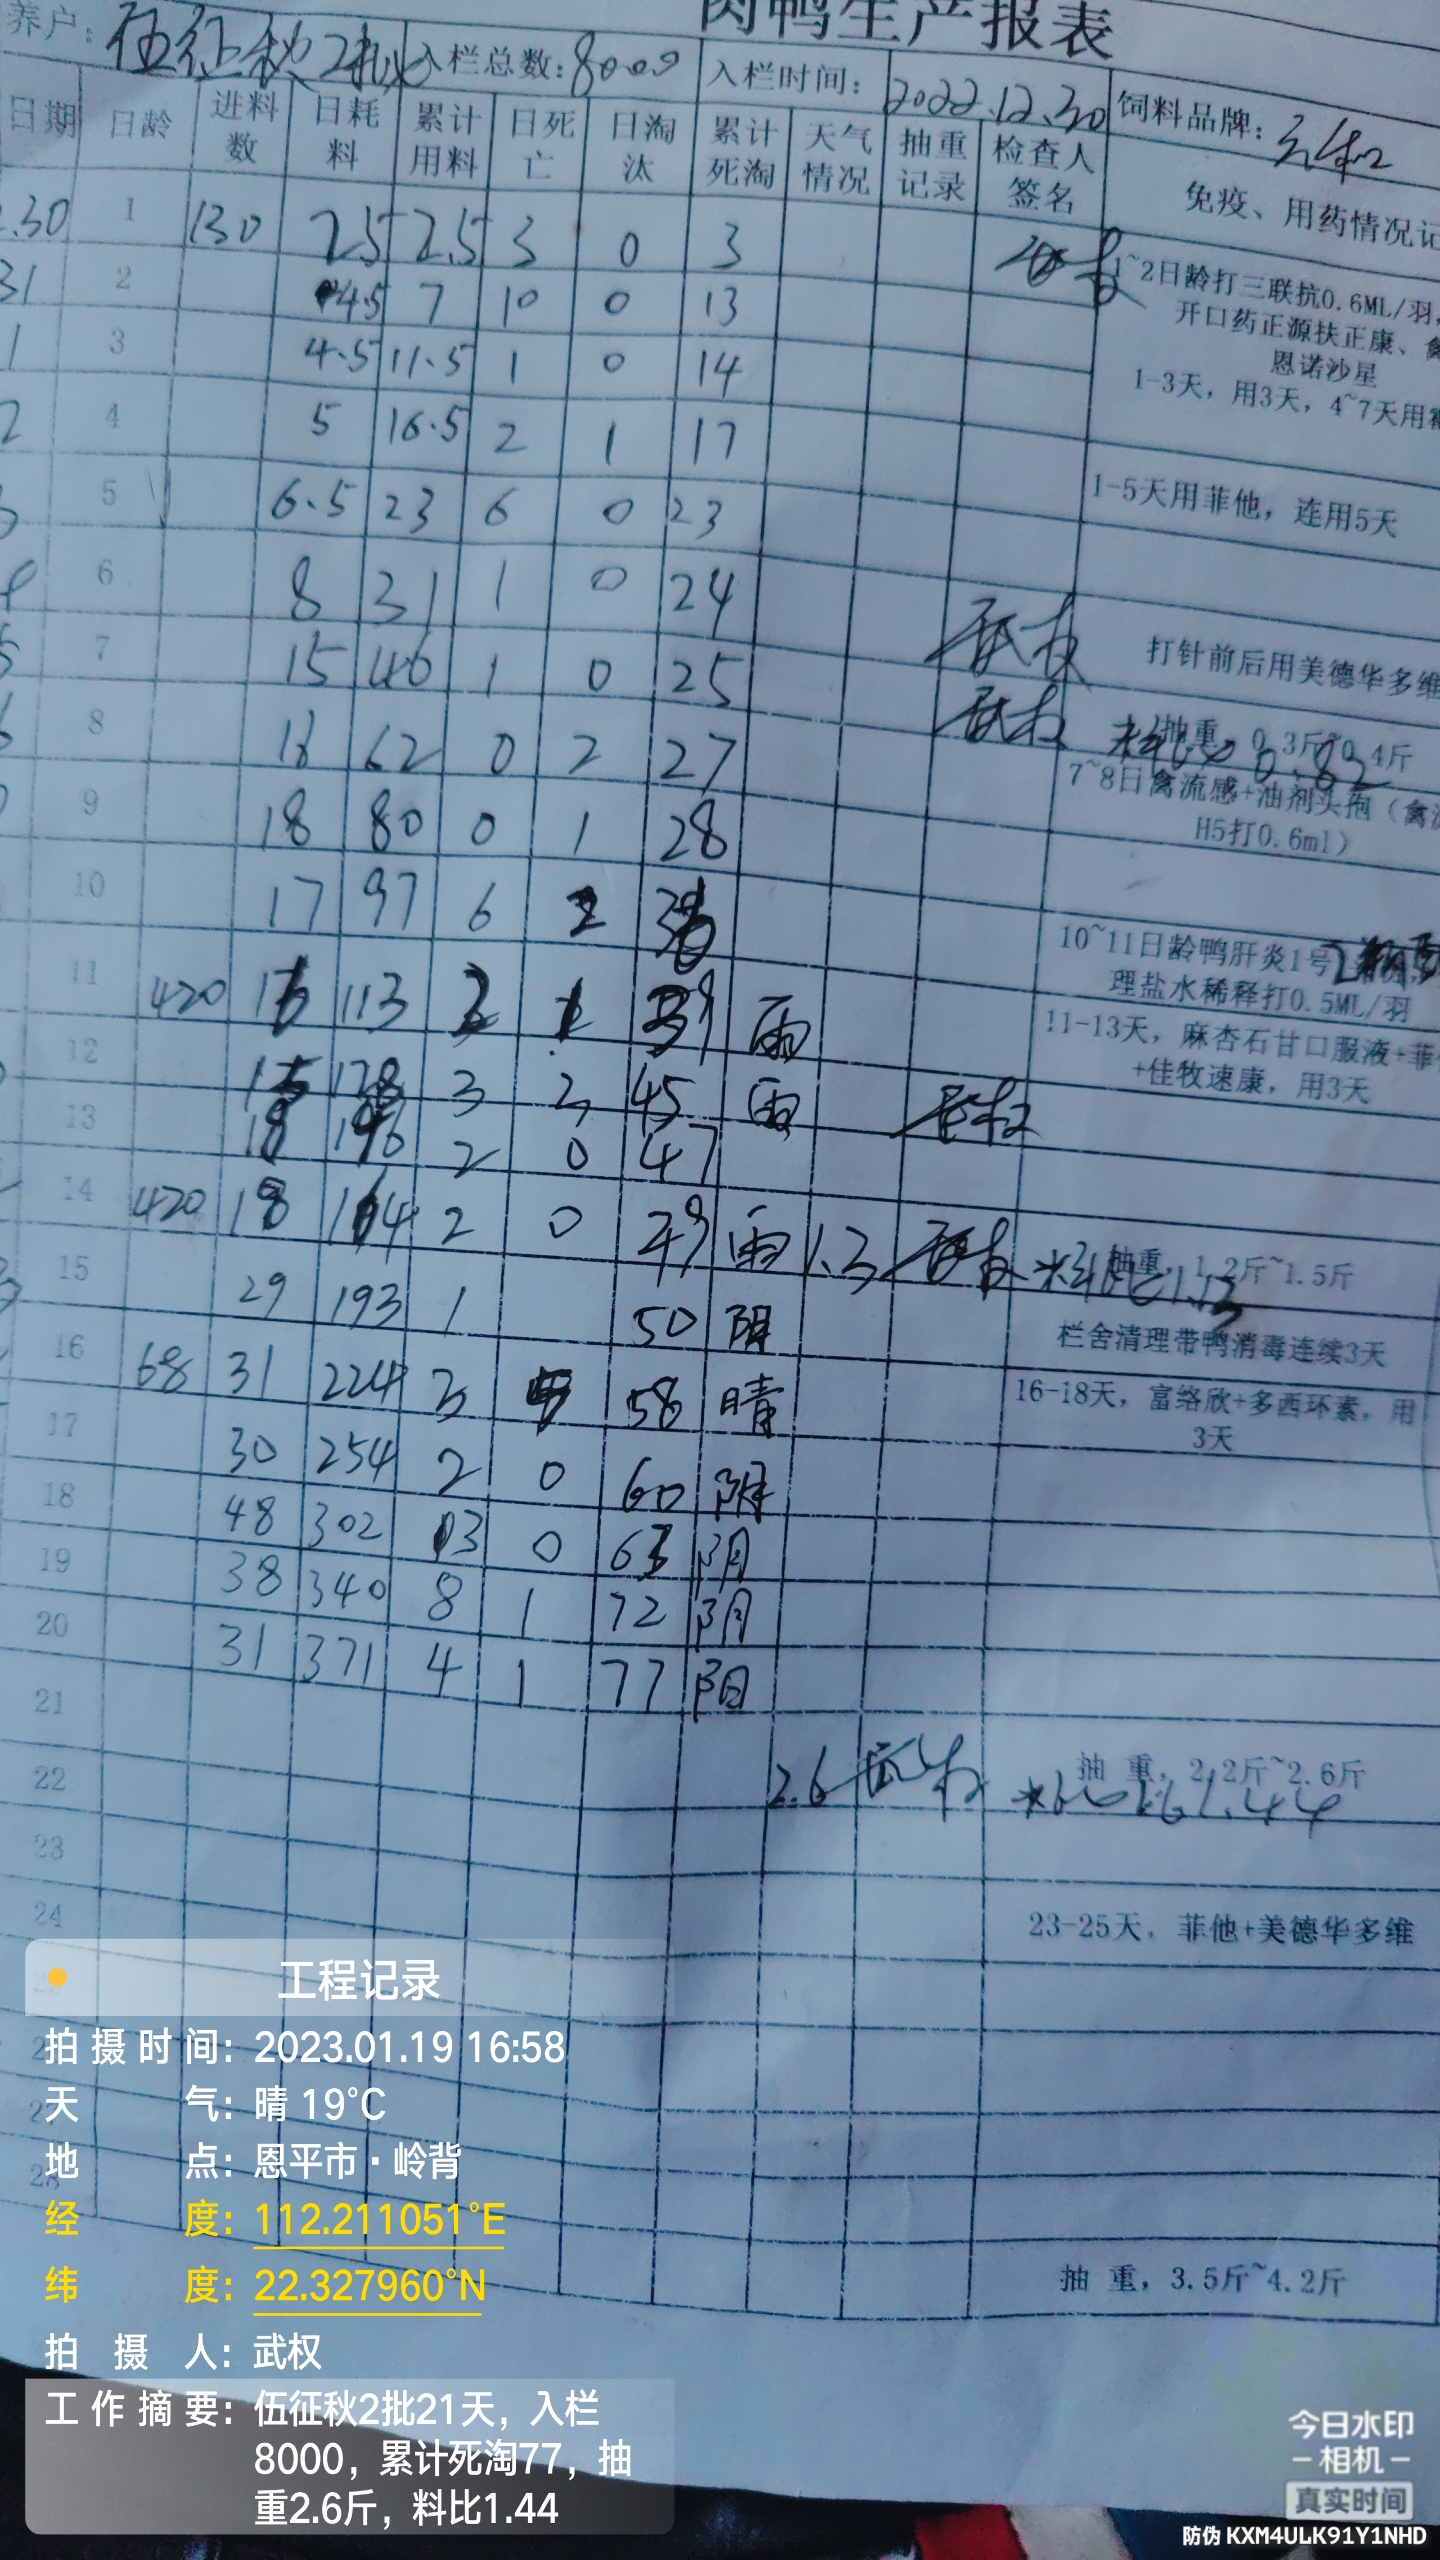 肉鸭生产报表
养户: 伍征秋2批 入栏总数: 8000 入栏时间: 2022.12.30 饲料品牌:
日期 日龄 进料数 日耗料 累计用料 日死亡 日淘汰 累计死淘 天气情况 抽重记录 检查人签名 免疫、用药情况记
.30 1 130 2.5 2.5 3 0 3
1~2日龄打三联抗0.6ML/羽,
开口药正源扶正康、禽
恩诺沙星
1-3天, 用3天, 4~7天用
31 2 4.5 7 10 0 13
1 3 4.5 11.5 1 0 14
2 4 5 16.5 2 1 17
5 6.5 23 6 0 23 1-5天用菲他, 连用5天
6 8 31 1 0 24
5 7 15 46 1 0 25 打针前后用美德华多维
8 16 62 0 2 27 抽重, 0.3斤~0.4斤 料比 0.82
7~8日禽流感+油剂头孢(禽流
H5打0.6ml)
9 18 80 0 1 28
10 17 97 6 2
10~11日龄鸭肝炎1号
理盐水稀释打0.5ML/羽
11 420 16 113 39 雨
11-13天, 麻杏石甘口服液+菲
+佳牧速康, 用3天
12 15 128 3 2 45 雨
13 18 146 2 0 47
14 420 18 164 2 0 49 雨 1.3 抽重, 1.2斤~1.5斤 料比1.13
15 29 193 1 50 阴 栏舍清理带鸭消毒连续3天
16 68 31 224 3 5 58 晴 16-18天, 富络欣+多西环素, 用
3天
17 30 254 2 0 60 阴
18 48 302 3 0 63 阴
19 38 340 8 1 72 阴
20 31 371 4 1 77 阴
21 2.6 抽 重, 2.2斤~2.6斤 料比1.44
22
23
24 23-25天, 菲他+美德华多维
28
抽 重, 3.5斤~4.2斤
工程记录
拍摄时间: 2023.01.19 16:58
天气: 晴 19°C
地点: 恩平市·岭背
经度: 112.211051°E
纬度: 22.327960°N
拍摄人: 武权
工作摘要: 伍征秋2批21天，入栏
8000，累计死淘77，抽
重2.6斤，料比1.44
今日水印
相机
真实时间
防伪 KXM4ULK91Y1NHD